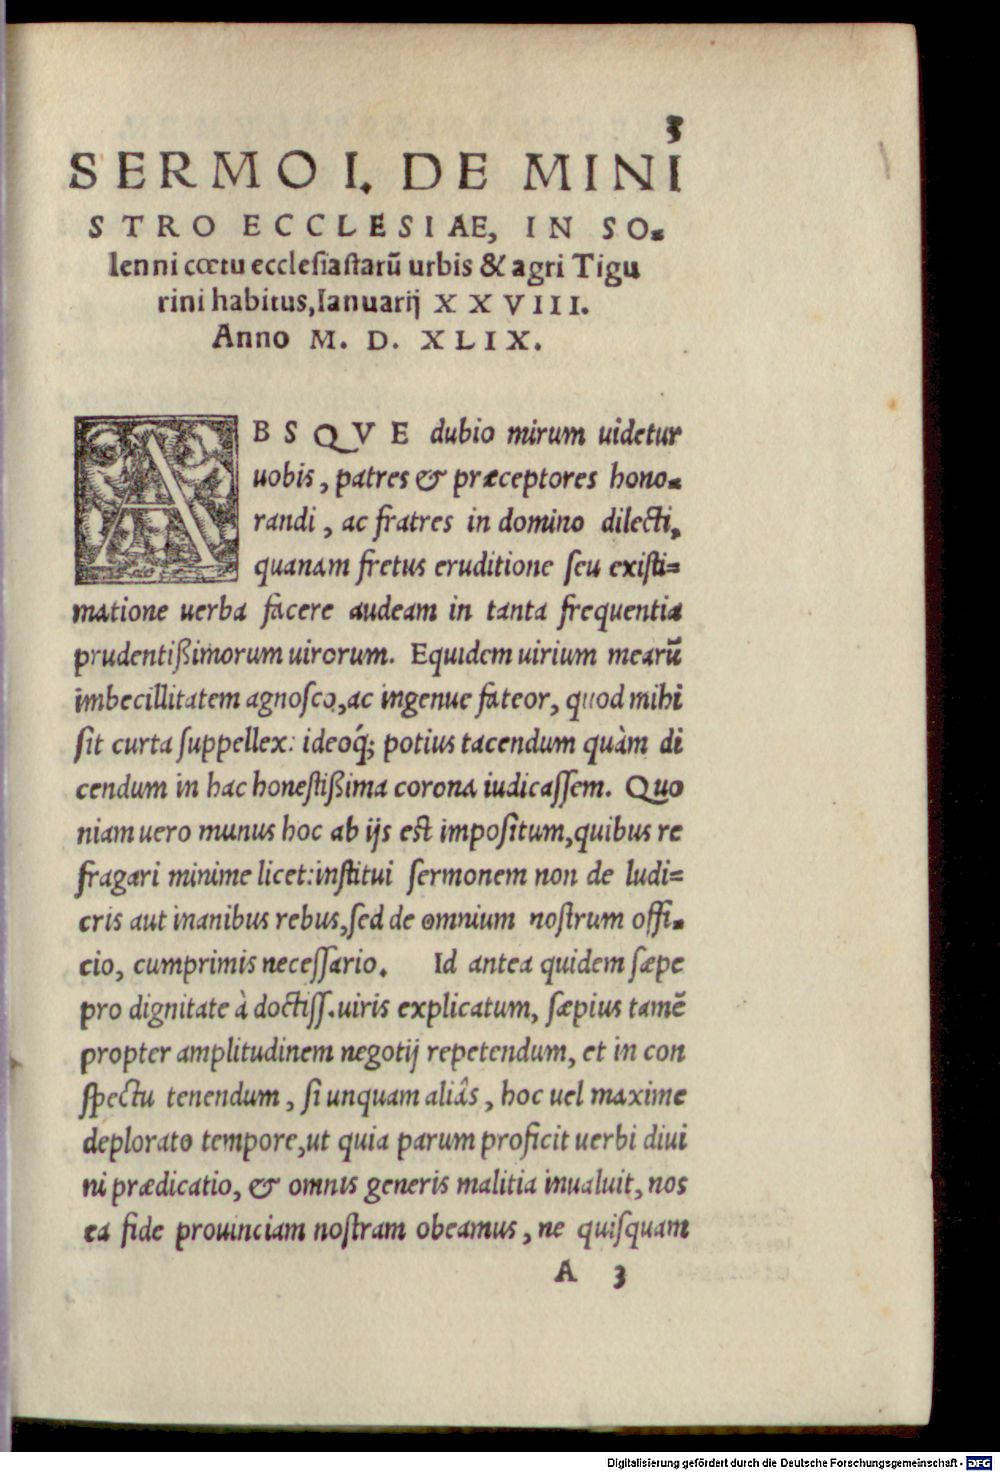 3
SERMO I. DE MINI
STRO ECCLESIAE, IN SO-
lenni cœtu ecclesiastarũ urbis & agri Tigu
rini habitus, Ianuarij XXVIII.
Anno M. D. XLIX.
ABSQVE dubio mirum uidetur
uobis, patres & præceptores hono-
randi, ac fratres in domino dilecti,
quanam fretus eruditione seu existi=
matione uerba facere audeam in tanta frequentia
prudentißimorum uirorum. Equidem uirium mearũ
imbecillitatem agnosco, ac ingenue fateor, quod mihi
sit curta suppellex: ideoq́; potius tacendum quàm di
cendum in hac honestißima corona iudicassem. Quo
niam uero munus hoc ab ijs est impositum, quibus re
fragari minime licet: institui sermonem non de ludi=
cris aut inanibus rebus, sed de omnium nostrum offi-
cio, cumprimis necessario. Id antea quidem sæpe
pro dignitate à doctiss. uiris explicatum, sæpius tamẽ
propter amplitudinem negotij repetendum, et in con
spectu tenendum, si unquam aliâs, hoc uel maxime
deplorato tempore, ut quia parum proficit uerbi diui
ni prædicatio, & omnis generis malitia inualuit, nos
ea fide prouinciam nostram obeamus, ne quisquam
A 3
Digitalisierung gefördert durch die Deutsche Forschungsgemeinschaft - DFG